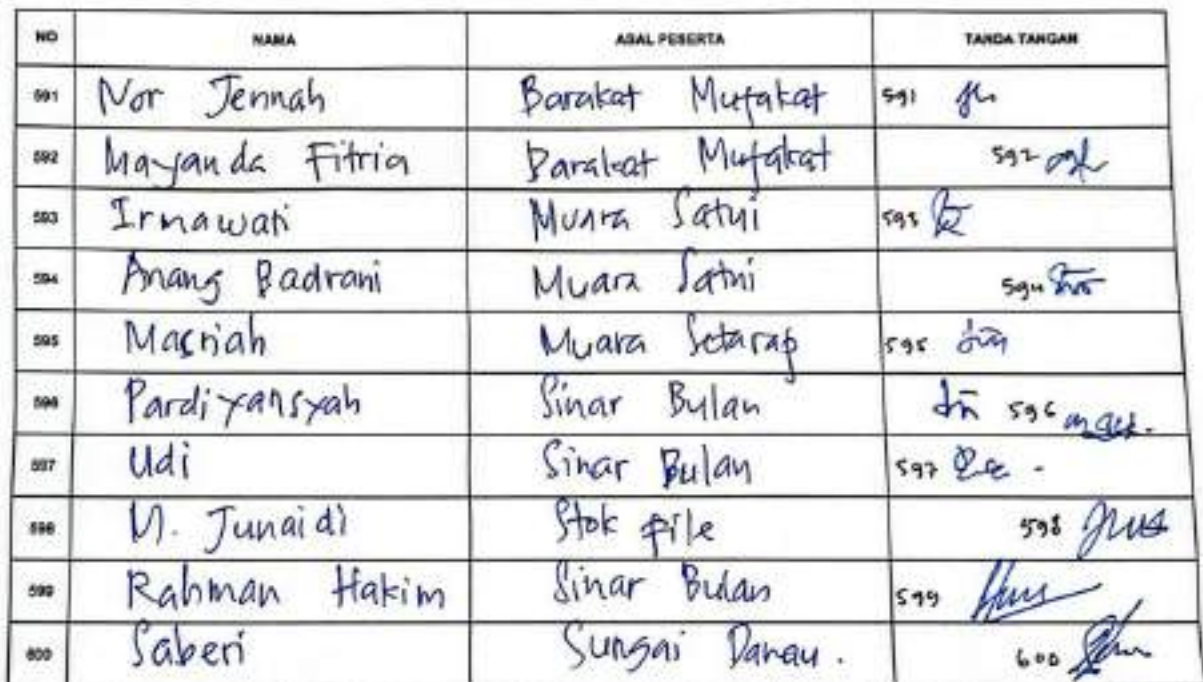 NO NAMA ASAL PESERTA TANDA TANGAN
591 Nor Jennah Barakat Mufakat 591
592 Mayanda Fitria Barakat Mufakat 592
593 Irmawati Muara Satui 593
594 Anang Badrani Muara Satui 594
595 Masriah Muara Setarap 595
596 Pardiyansyah Sinar Bulan 596
597 Udi Sinar Bulan 597
598 M. Junaidi Stok pile 598
599 Rahman Hakim Sinar Bulan 599
600 Saberi Sungai Danau. 600